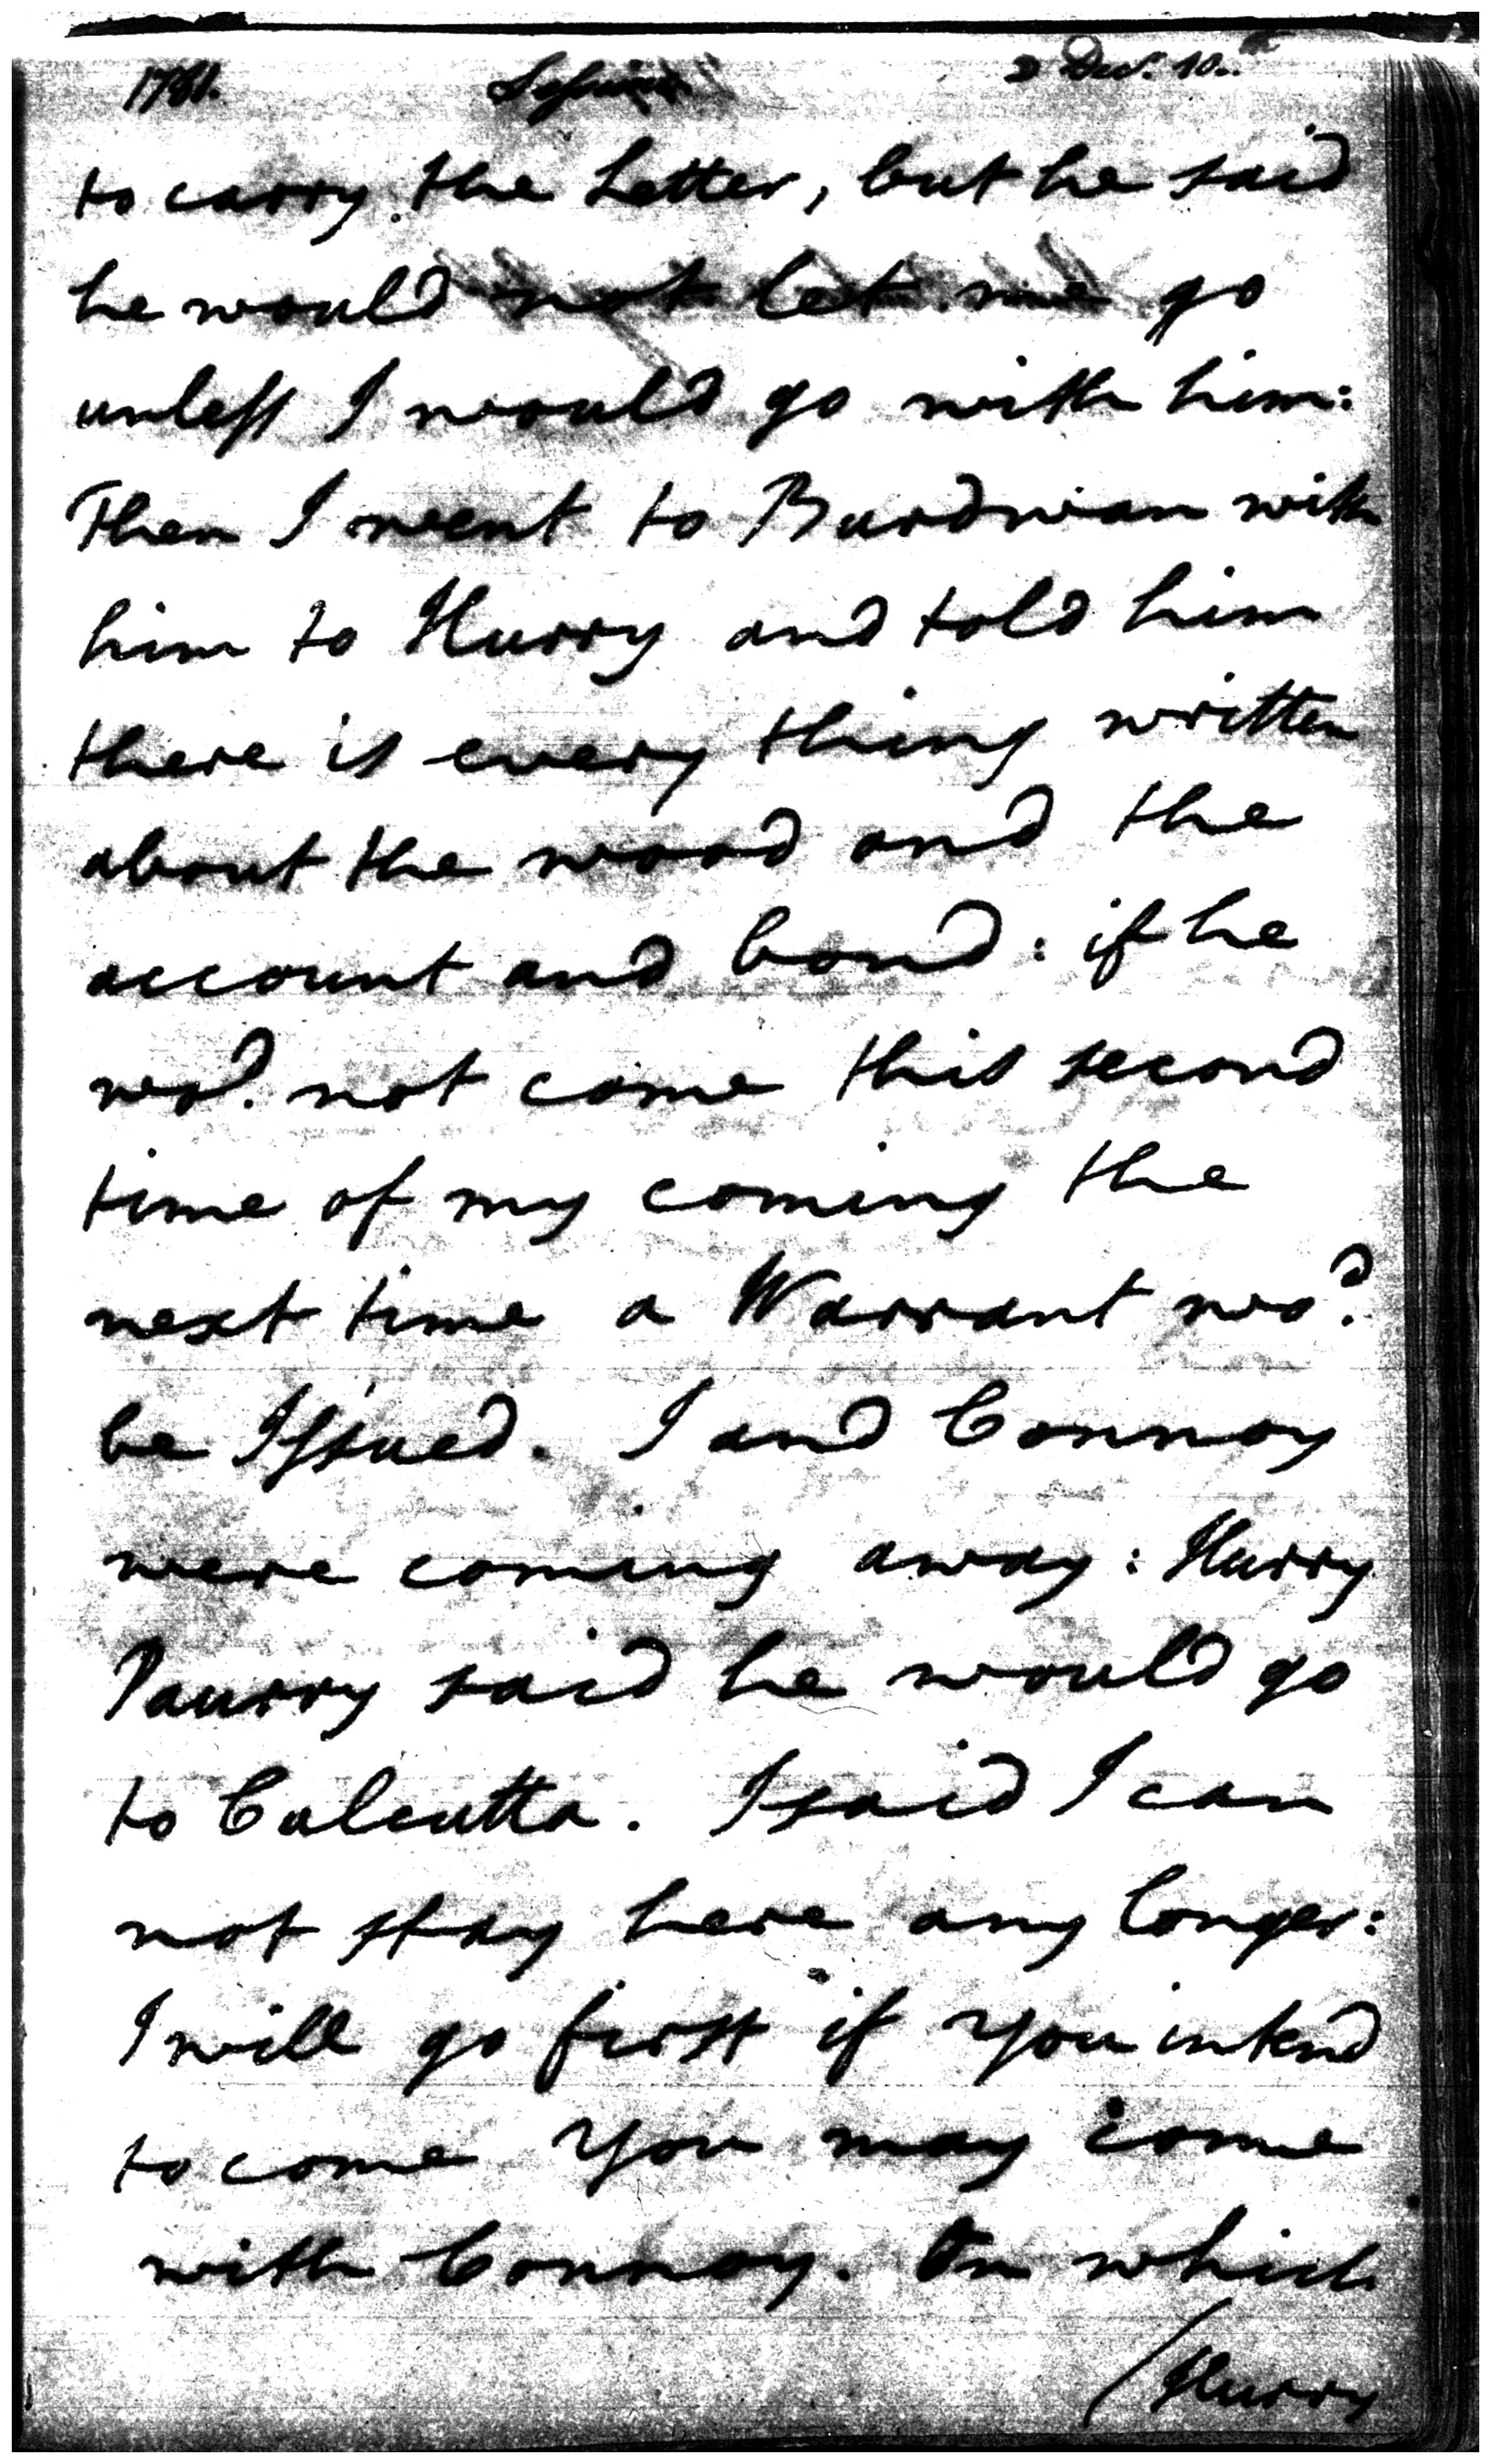 1781. Sessions Decr. 10th
to carry the Letter, but he said
he would not let me go
unless I would go with him:
Then I went to Burdwan with
him to Hurry and told him
there is every thing written
about the wood and the
account and bond: if he
wod. not come this second
time of my coming the
next time a Warrant wod.
be Issued. I and Connoy
were coming away: Hurry
Paurry said he would go
to Calcutta. I said I can
not stay here any longer:
I will go first if you intend
to come you may come
with Connoy. On which
/Hurry